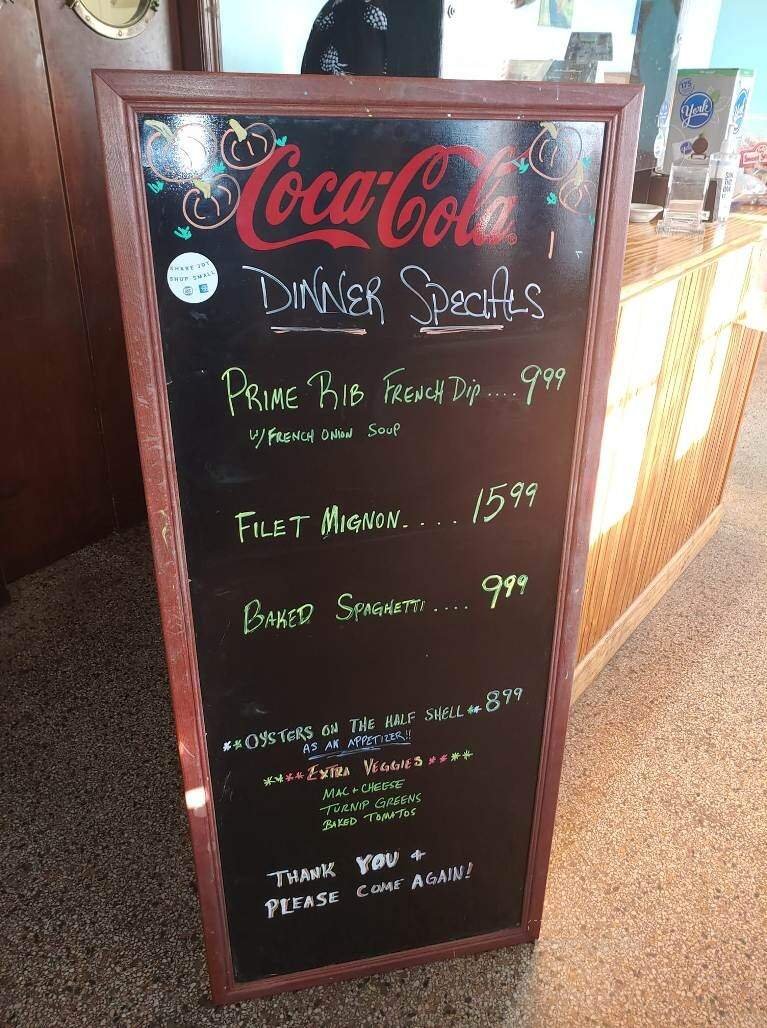 Coca-Cola
SHOP SMALL
DINNER SPECIALS
PRIME RIB FRENCH DIP .... 9.99
W/ FRENCH ONION SOUP
FILET MIGNON .... 15.99
BAKED SPAGHETTI .... 9.99
**OYSTERS ON THE HALF SHELL ** 8.99
AS AN APPETIZER!!
**** EXTRA VEGGIES ****
MAC + CHEESE
TURNIP GREENS
BAKED TOMATOS
THANK YOU +
PLEASE COME AGAIN!
York
175